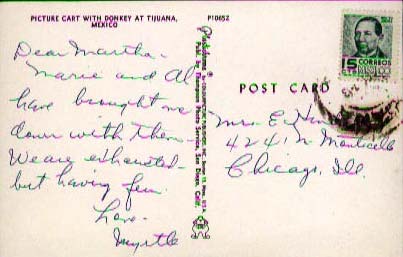 PICTURE CART WITH DONKEY AT TIJUANA,
MEXICO
P10652
Dear Martha-
Marie and Al
have brought me
down with them-
We are exhausted
but having fun.
Love-
Myrtle
POST CARD
15 CORREOS
MEXICO
Mrs. E.
4241 N. Monticello
Chicago, Ill.